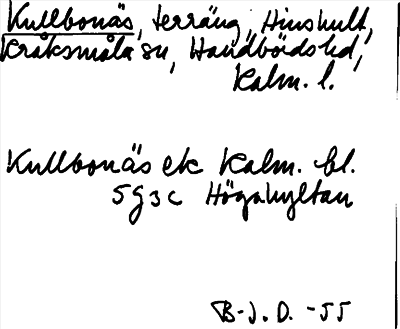 Kullbonäs, terräng, Hinshult,
Kråksmåla sn, Handbörds hd,
Kalm. l.
Kullbonäs ek Kalm. bl.
5g3c Högahyltan
B-J. D. -55